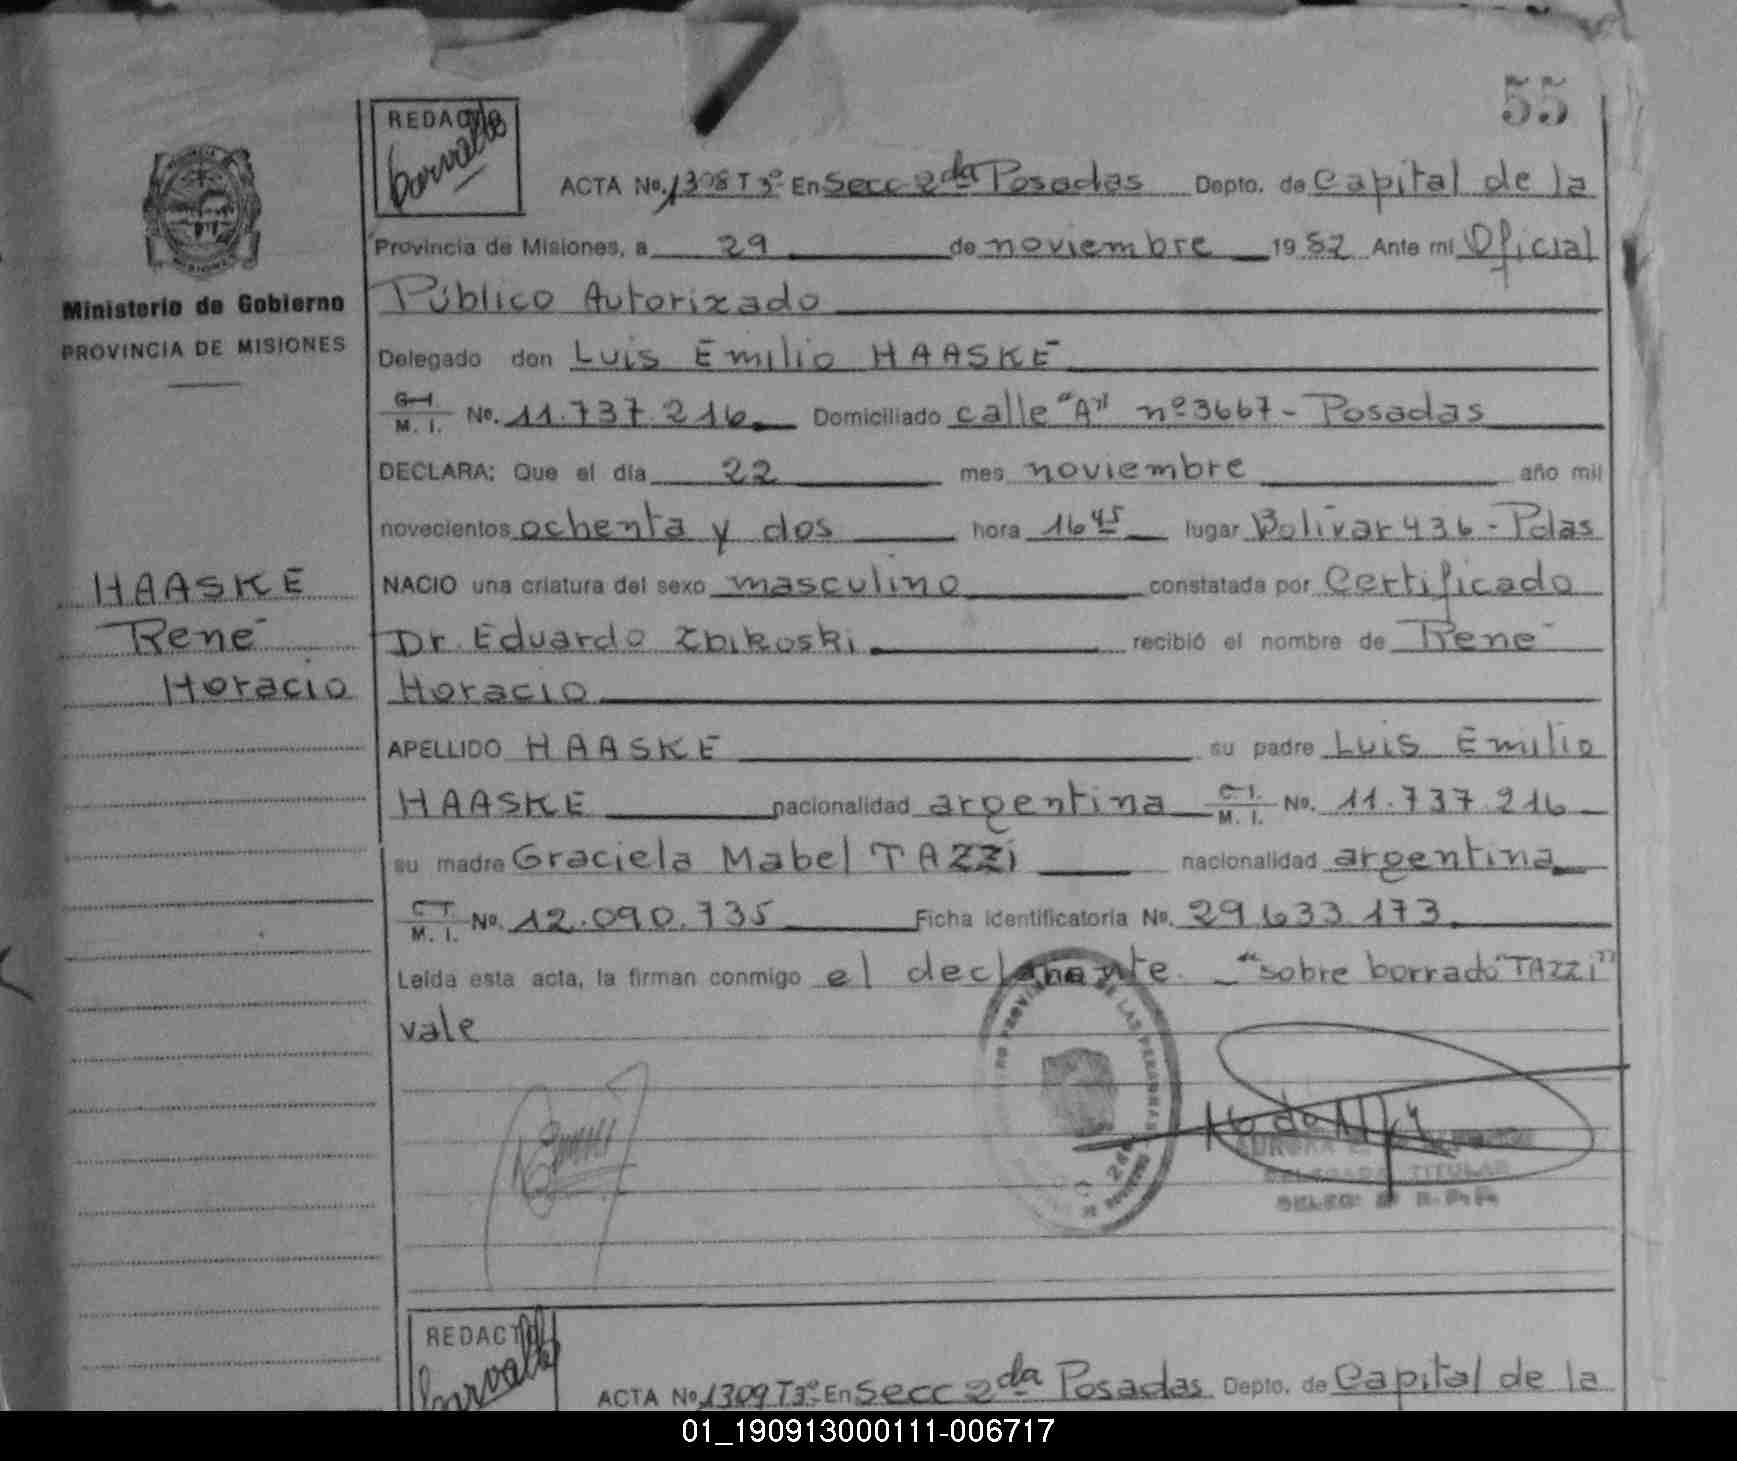 55
REDACTO
ACTA No. 1308 T 3º En Secc 2da Posadas Depto. de Capital de la
Provincia de Misiones, a 29 de noviembre 1982 Ante mi Oficial
Público Autorizado
Ministerio de Gobierno
PROVINCIA DE MISIONES
Delegado don Luis Emilio HAASKE
C. I. M. I. No. 11.737.216 Domiciliado calle "A" nº 3667 - Posadas
DECLARA: Que el día 22 mes noviembre año mil
novecientos ochenta y dos hora 16 45 lugar Bolívar 436 - Pdas
HAASKE
René
Horacio
NACIO una criatura del sexo masculino constatada por Certificado
Dr. Eduardo Zbikoski recibió el nombre de René
Horacio
APELLIDO HAASKE su padre Luis Emilio
HAASKE nacionalidad argentina C. I. M. I. No. 11.737.216
su madre Graciela Mabel TAZZI nacionalidad argentina
C. I. M. I. No. 12.090.735 Ficha identificatoria No. 29.633.173
Leída esta acta, la firman conmigo el declarante. - "sobre borrado "TAZZI"
vale
DELEGADA TITULAR
REDACTO
ACTA No. 1309 T 3º En Secc 2da Posadas Depto. de Capital de la
01_190913000111-006717